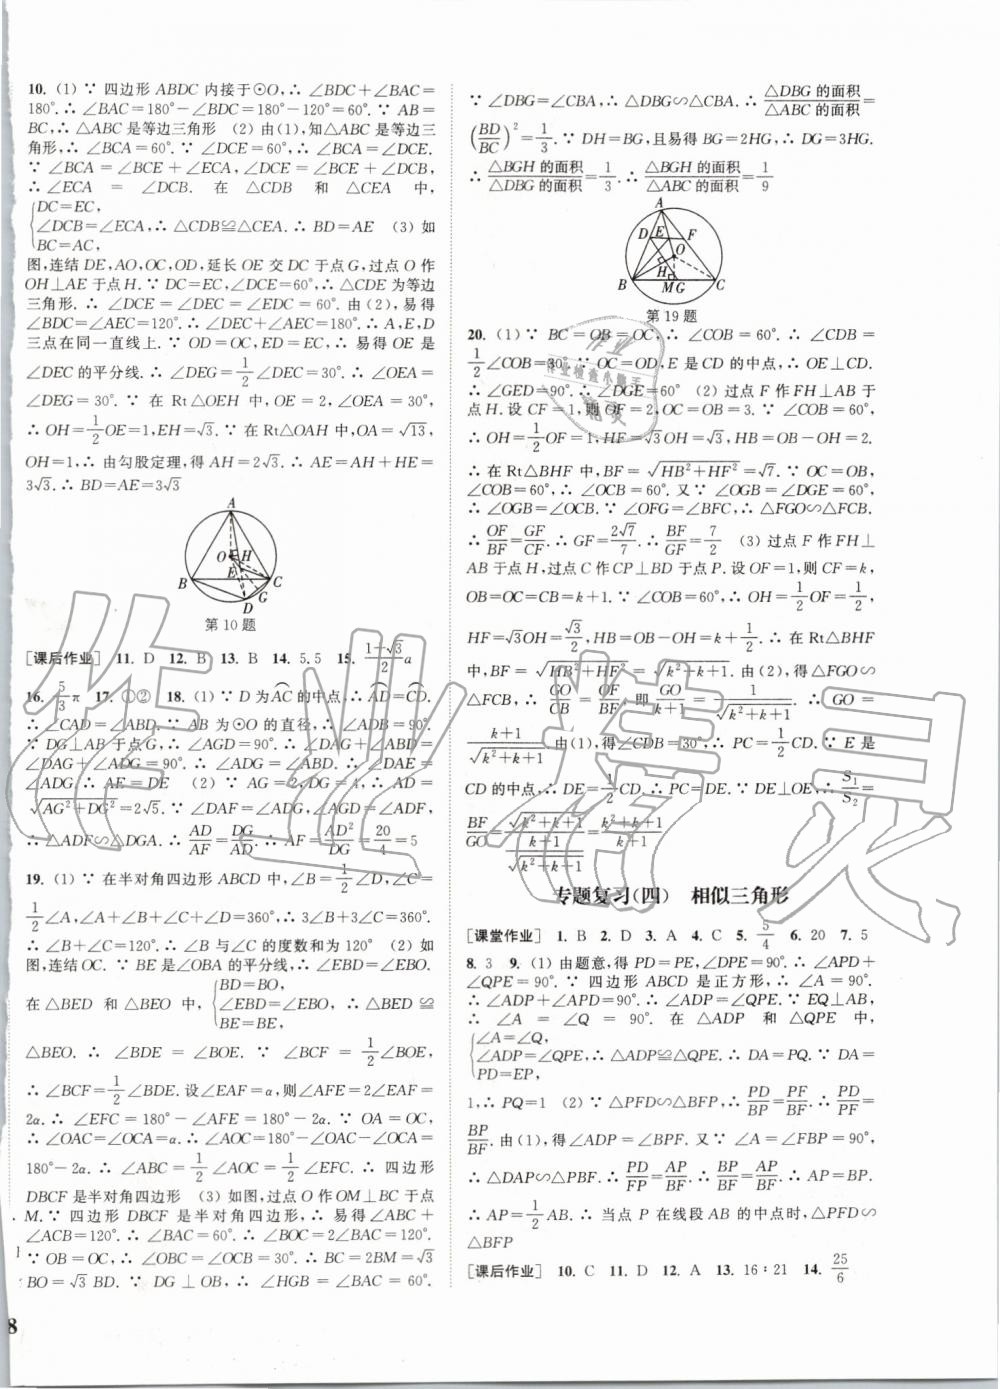 10. (1) ∵ 四边形 ABDC 内接于⊙O,∴ ∠BDC+∠BAC=
180°.∴ ∠BAC=180°-∠BDC=180°-120°=60°.∵ AB=
BC,∴ △ABC 是等边三角形 (2) 由(1),知△ABC 是等边三
角形,∴ ∠BCA=60°.∵ ∠DCE=60°,∴ ∠BCA=∠DCE.
∵ ∠BCA=∠BCE+∠ECA,∠DCE=∠BCE+∠DCB,
∴ ∠ECA = ∠DCB. 在 △CDB 和 △CEA 中,
DC=EC,
∠DCB=∠ECA,∴ △CDB≌△CEA.∴ BD=AE (3) 如
BC=AC,
图,连结 DE,AO,OC,OD,延长 OE 交 DC 于点 G,过点 O 作
OH⊥AE 于点 H.∵ DC=EC,∠DCE=60°,∴ △CDE 为等边
三角形.∴ ∠DCE=∠DEC=∠EDC=60°.由(2),易得
∠BDC=∠AEC=120°.∴ ∠DEC+∠AEC=180°.∴ A,E,D
三点在同一直线上.∵ OD=OC,EC=ED,∴ 易得 OE 是
∠DEC 的平分线.∴ ∠DEG=1/2∠DEC=30°.∴ ∠OEA=
∠DEG=30°.∵ 在 Rt△OEH 中,OE=2,∠OEA=30°,
∴ OH=1/2OE=1,EH=√3.∵ 在 Rt△OAH 中,OA=√13,
OH=1,∴ 由勾股定理,得 AH=2√3.∴ AE=AH+HE=
3√3.∴ BD=AE=3√3
A
O
H
E
B
C
G
D
第 10 题
[课后作业] 11. D 12. B 13. B 14. 5.5 15. (1+√3)/2 a
16. 5/3π 17. ①② 18. (1) ∵ D 为AC的中点,∴ AD=CD.
∴ ∠CAD=∠ABD.∵ AB 为⊙O 的直径,∴ ∠ADB=90°.
∵ DG⊥AB 于点 G,∴ ∠AGD=90°.∴ ∠DAG+∠ABD=
∠DAG+∠ADG=90°.∴ ∠ADG=∠ABD.∴ ∠DAE=
∠ADG.∴ AE=DE (2) ∵ AG=2,DG=4,∴ AD=
√(AG²+DG²)=2√5.∵ ∠DAF=∠ADG,∠AGD=∠ADF,
∴ △ADF∽△DGA.∴ AD/AF=DG/AD.∴ AF=AD²/DG=20/4=5
19. (1) ∵ 在半对角四边形 ABCD 中,∠B=1/2∠D,∠C=
1/2∠A,∠A+∠B+∠C+∠D=360°,∴ 3∠B+3∠C=360°.
∴ ∠B+∠C=120°.∴ ∠B 与∠C 的度数和为 120° (2) 如
图,连结 OC.∵ BE 是∠OBA 的平分线,∴ ∠EBD=∠EBO.
BD=BO,
在 △BED 和 △BEO 中, ∠EBD=∠EBO,∴ △BED≌
BE=BE,
△BEO.∴ ∠BDE = ∠BOE.∵ ∠BCF = 1/2∠BOE,
∴ ∠BCF=1/2∠BDE.设∠EAF=α,则∠AFE=2∠EAF=
2α.∴ ∠EFC=180°-∠AFE=180°-2α.∵ OA=OC,
∴ ∠OAC=∠OCA=α.∴ ∠AOC=180°-∠OAC-∠OCA=
180°-2α.∴ ∠ABC=1/2∠AOC=1/2∠EFC.∴ 四边形
DBCF 是半对角四边形 (3) 如图,过点 O 作 OM⊥BC 于点
M.∵ 四边形 DBCF 是半对角四边形,∴ 易得∠ABC+
∠ACB=120°.∴ ∠BAC=60°.∴ ∠BOC=2∠BAC=120°.
∵ OB=OC,∴ ∠OBC=∠OCB=30°.∴ BC=2BM=√3
BO=√3 BD. ∵ DG⊥OB,∴ ∠HGB=∠BAC=60°.
8
∵ ∠DBG=∠CBA,∴ △DBG∽△CBA.∴ △DBG 的面积/△ABC 的面积=
(BD/BC)²=1/3.∵ DH=BG,且易得 BG=2HG,∴ DG=3HG.
∴ △BGH 的面积/△DBG 的面积=1/3.∴ △BGH 的面积/△ABC 的面积=1/9
A
D
E
F
O
H
B
M G
C
第 19 题
20. (1) ∵ BC=OB=OC,∴ ∠COB=60°.∴ ∠CDB=
1/2∠COB=30°.∵ OC=OD,E 是 CD 的中点,∴ OE⊥CD.
∴ ∠GED=90°.∴ ∠DGE=60° (2) 过点 F 作 FH⊥AB 于
点 H.设 CF=1,则 OF=2,OC=OB=3.∵ ∠COB=60°,
∴ OH=1/2OF=1,HF=√3OH=√3,HB=OB-OH=2.
∴ 在 Rt△BHF 中,BF=√(HB²+HF²)=√7.∵ OC=OB,
∠COB=60°,∴ ∠OCB=60°.又∵ ∠OGB=∠DGE=60°,
∴ ∠OGB=∠OCB.∵ ∠OFG=∠BFC,∴ △FGO∽△FCB.
∴ OF/BF=GF/CF.∴ GF=2√7/7.∴ BF/GF=7/2 (3) 过点 F 作 FH⊥
AB 于点 H,过点 C 作 CP⊥BD 于点 P.设 OF=1,则 CF=k,
OB=OC=CB=k+1.∵ ∠COB=60°,∴ OH=1/2OF=1/2,
HF=√3OH=√3/2,HB=OB-OH=k+1/2.∴ 在 Rt△BHF
中,BF=√(HB²+HF²)=√(k²+k+1).由(2),得△FGO∽
△FCB,∴ GO/CB=OF/BF,即 GO/(k+1)=1/√(k²+k+1).∴ GO=
(k+1)/√(k²+k+1).由(1),得∠CDB=30°,∴ PC=1/2CD.∵ E 是
CD 的中点,∴ DE=1/2CD.∴ PC=DE.∵ DE⊥OE,∴ S₁/S₂=
BF/GO=√(k²+k+1)/((k+1)/√(k²+k+1))=(k²+k+1)/(k+1)
专题复习(四) 相似三角形
[课堂作业] 1. B 2. D 3. A 4. C 5. 5/4 6. 20 7. 5
8. 3 9. (1) 由题意,得 PD=PE,∠DPE=90°.∴ ∠APD+
∠QPE=90°.∵ 四边形 ABCD 是正方形,∴ ∠A=90°.
∴ ∠ADP+∠APD=90°.∴ ∠ADP=∠QPE.∵ EQ⊥AB,
∴ ∠A = ∠Q = 90°. 在 △ADP 和 △QPE 中,
∠A=∠Q,
∠ADP=∠QPE,∴ △ADP≌△QPE.∴ DA=PQ.∵ DA=
PD=EP,
1,∴ PQ=1 (2) ∵ △PFD∽△BFP,∴ PD/BP=PF/BF.∴ PD/PF=
BP/BF.由(1),得∠ADP=∠BPF.又∵ ∠A=∠FBP=90°,
∴ △DAP∽△PBF.∴ PD/FP=AP/BF.∴ BP/BF=AP/BF.∴ AP=BP.
∴ AP=1/2AB.∴ 当点 P 在线段 AB 的中点时,△PFD∽
△BFP
[课后作业] 10. C 11. D 12. A 13. 16∶21 14. 25/6
作业精灵